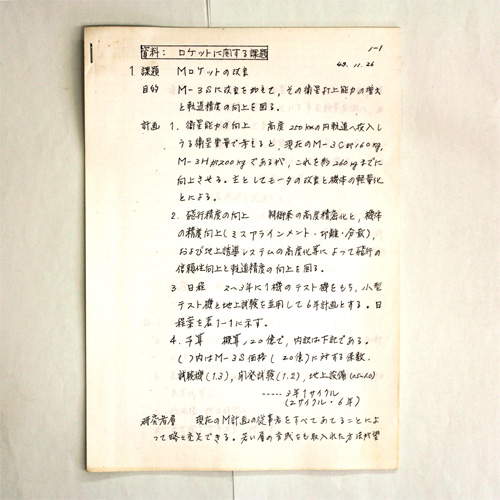 資料: ロケットに関する課題
1-1
49. 11. 26
1. 課題 Mロケットの改良
目的 M-3Sに改良を加えて、その衛星打上能力の増大
と軌道精度の向上を図る。
計画 1. 衛星能力の向上 高度250kmの円軌道へ投入し
うる衛星重量で考えると、現在のM-3Cが160kg,
M-3Hが200kgであるが、これを約260kgまでに
向上させる。主としてモータの改良と機体の軽量化
とによる。
2. 飛行精度の向上 制御系の高度精密化と、機体
の精度向上(ミスアラインメント・切離・分散),
および地上誘導システムの高度化等によって飛行の
信頼性向上と軌道精度の向上を図る。
3. 日程 2〜3年に1機のテスト機をもち、小型
テスト機と地上試験を並用して6年計画とする。日
程案を表1-1に示す。
4. 予算 概算120億で、内訳は下記である。
( )内はM-3S価格(20億)に対する係数.
試験機(1.3), 開発試験(1.2), 地上設備
----- 3年1サイクル
(2サイクル・6年)
研究者層 現在のM計画の従事者をすべてあてることによ
って略々充足できる。若い層の育成をも取入れた方法が望